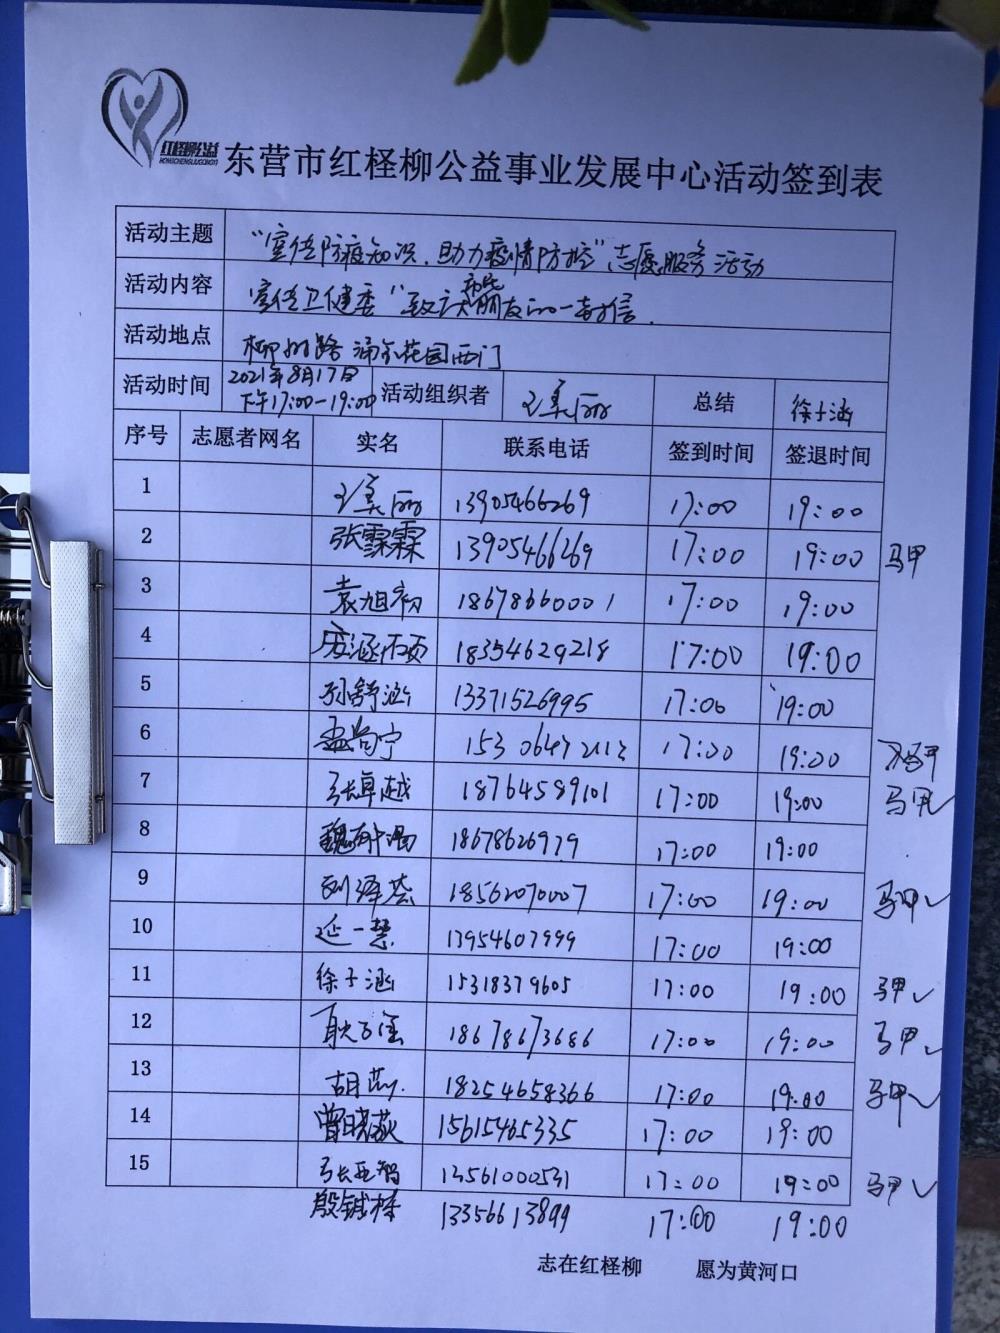 红柽柳公益
HONGCHENGLIUGONGYI
东营市红柽柳公益事业发展中心活动签到表
活动主题 “宣传防疫知识，助力疫情防控”志愿服务活动
活动内容 宣传卫健委“致市民朋友的一封信
活动地点 柳州路 花园西门
活动时间 2021年8月17日 下午17:00-19:00 活动组织者 美丽 总结 徐子涵
序号 志愿者网名 实名 联系电话 签到时间 签退时间
1 美丽 13905466269 17:00 19:00
2 张霖霖 13905466269 17:00 19:00 马甲
3 袁旭 18678660001 17:00 19:00
4 涵 18354629218 17:00 19:00
5 孙舒涵 13371526995 17:00 19:00
6 孟尚宁 17:00 19:00 马甲
7 张卓越 18764589101 17:00 19:00 马甲✓
8 魏 18678626979 17:00 19:00
9 刘泽荟 18562070007 17:00 19:00 马甲✓
10 延一慧 13954607999 17:00 19:00
11 徐子涵 15318379605 17:00 19:00 马甲✓
12 耿 18678673686 17:00 19:00 马甲✓
13 胡 18254658366 17:00 19:00 马甲✓
14 曾晓 15615465335 17:00 19:00
15 张 13561000531 17:00 19:00 马甲✓
殷 13356613899 17:00 19:00
志在红柽柳 愿为黄河口